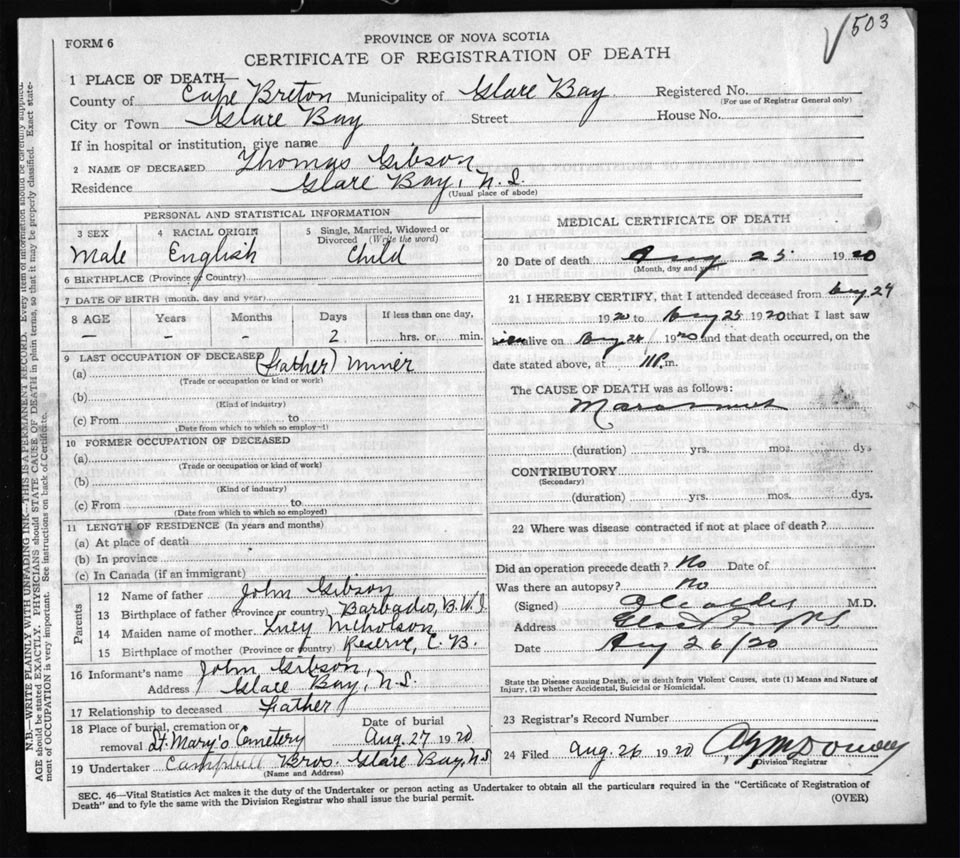 503
FORM 6
PROVINCE OF NOVA SCOTIA
CERTIFICATE OF REGISTRATION OF DEATH
1 PLACE OF DEATH—
County of Cape Breton Municipality of Glace Bay Registered No.
(For use of Registrar General only)
City or Town Glace Bay Street House No.
If in hospital or institution, give name
2 NAME OF DECEASED Thomas Gibson
Residence Glace Bay, N.S.
(Usual place of abode)
PERSONAL AND STATISTICAL INFORMATION
3 SEX 4 RACIAL ORIGIN 5 Single, Married, Widowed or Divorced (Write the word)
Male English Child
6 BIRTHPLACE (Province or Country)
7 DATE OF BIRTH (month, day and year)
8 AGE Years Months Days If less than one day,
— — — 2 hrs. or min.
9 LAST OCCUPATION OF DECEASED
(a) (Father) Miner
(Trade or occupation or kind or work)
(b)
(Kind of industry)
(c) From to
(Date from which to which so employed)
10 FORMER OCCUPATION OF DECEASED
(a)
(Trade or occupation or kind of work)
(b)
(Kind of industry)
(c) From to
(Date from which to which so employed)
11 LENGTH OF RESIDENCE (In years and months)
(a) At place of death
(b) In province
(c) In Canada (if an immigrant)
Parents
12 Name of father John Gibson
13 Birthplace of father (Province or country) Barbados, B.W.I.
14 Maiden name of mother Lucy Nicholson
15 Birthplace of mother (Province or country) Reserve, C.B.
16 Informant's name John Gibson,
Address Glace Bay, N.S.
17 Relationship to deceased Father
18 Place of burial, cremation or removal St. Mary's Cemetery Date of burial Aug. 27 1920
19 Undertaker Campbell Bros. Glace Bay, N.S
(Name and Address)
MEDICAL CERTIFICATE OF DEATH
20 Date of death Aug 25 1920
(Month, day and year)
21 I HEREBY CERTIFY, that I attended deceased from Aug 24
1920 to Aug 25 1920 that I last saw
him alive on Aug 24 1920 and that death occurred, on the
date stated above, at 11 P.m.
The CAUSE OF DEATH was as follows:
Marasmus
(duration) yrs. mos. dys
CONTRIBUTORY
(Secondary)
(duration) yrs. mos. dys.
22 Where was disease contracted if not at place of death?
Did an operation precede death? No Date of
Was there an autopsy? No
(Signed) M.D.
Address
Date Aug 26/20
State the Disease causing Death, or in death from Violent Causes, state (1) Means and Nature of
Injury, (2) whether Accidental, Suicidal or Homicidal.
23 Registrar's Record Number
24 Filed Aug. 26 1920
Division Registrar
SEC. 46—Vital Statistics Act makes it the duty of the Undertaker or person acting as Undertaker to obtain all the particulars required in the "Certificate of Registration of
Death" and to fyle the same with the Division Registrar who shall issue the burial permit.
(OVER)
N.B.—WRITE PLAINLY WITH UNFADING INK—THIS IS A PERMANENT RECORD. Every item of information should be carefully supplied.
AGE should be stated EXACTLY. PHYSICIANS should STATE CAUSE OF DEATH in plain terms, so that it may be properly classified. Exact state-
ment of OCCUPATION is very important. See instructions on back of Certificate.